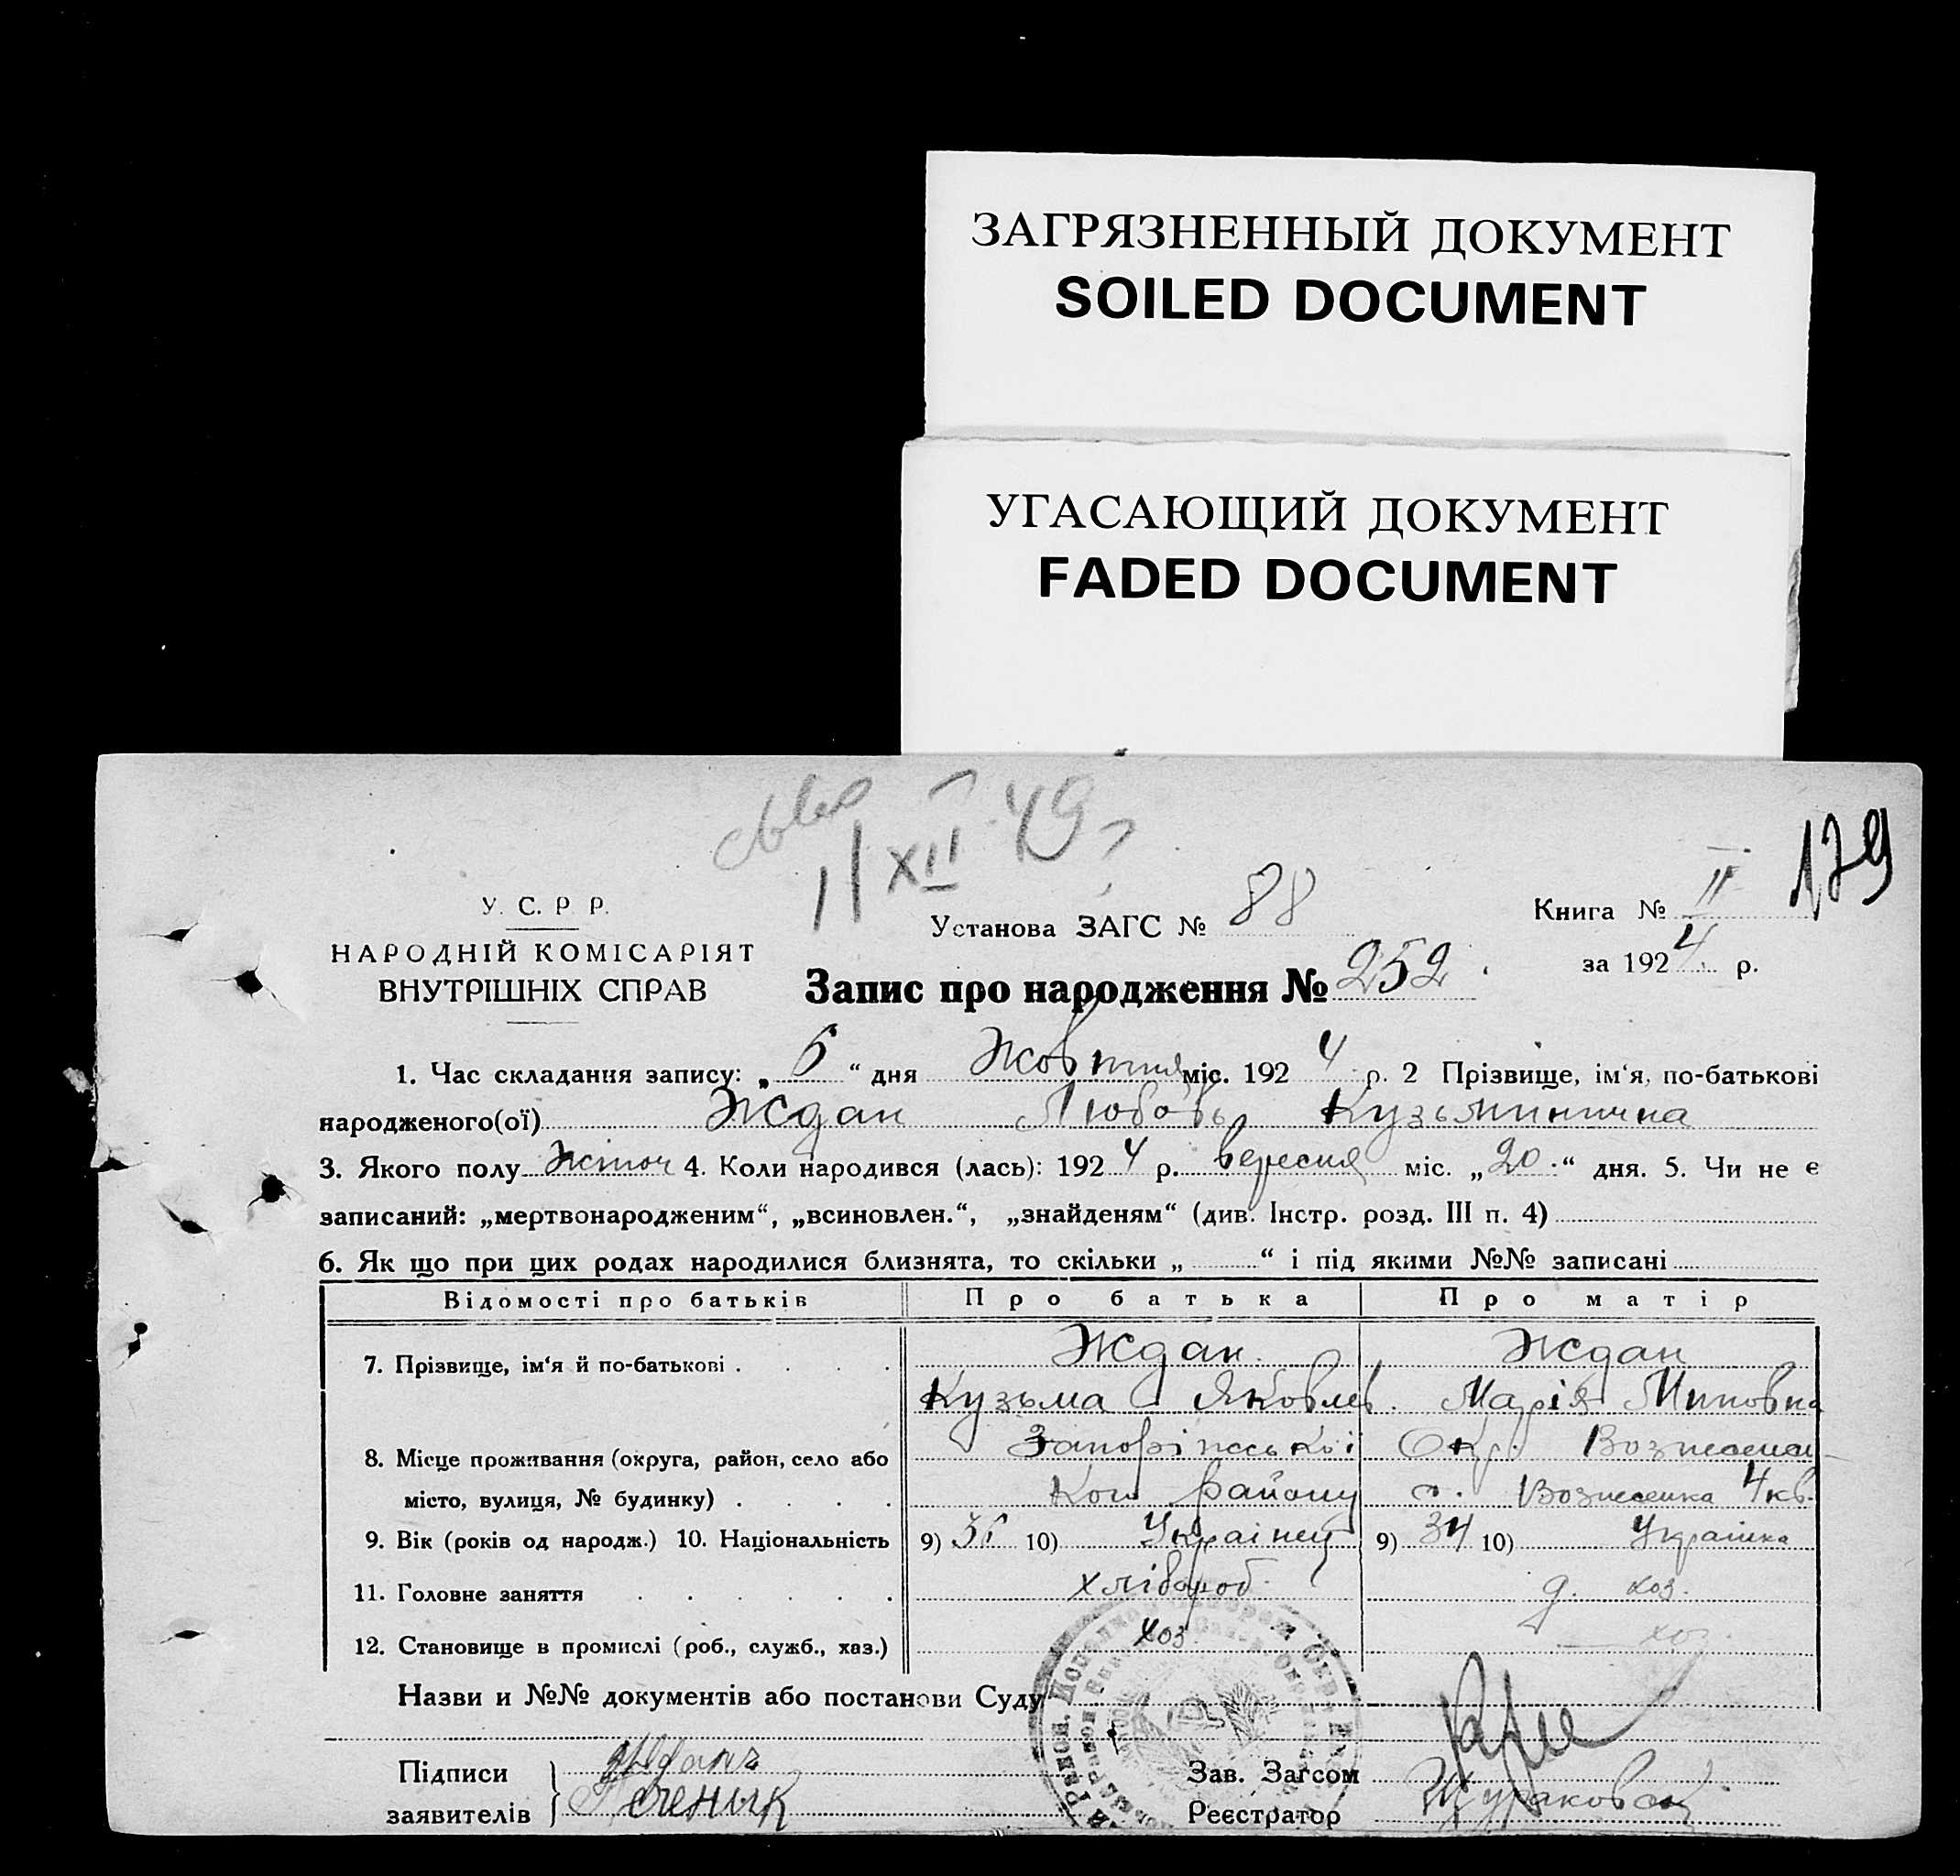 ЗАГРЯЗНЕННЫЙ ДОКУМЕНТ
SOILED DOCUMENT
УГАСАЮЩИЙ ДОКУМЕНТ
FADED DOCUMENT
11 XII 49
179
У. С. Р. Р.
НАРОДНІЙ КОМІСАРІЯТ
ВНУТРІШНІХ СПРАВ
Установа ЗАГС № 88
Книга № II
за 1924 р.
Запис про народження № 252
1. Час складання запису: „ 6 “ дня Жовтня міс. 1924 р. 2 Прізвище, ім‘я, по-батькові
народженого(ої) Ждан Любовь Кузьминична
3. Якого полу Жіноч 4. Коли народився (лась): 1924 р. вересня міс. „ 20 “ дня. 5. Чи не є
записаний: „мертвонародженим“, „всиновлен.“, „знайденям“ (див. Інстр. розд. III п. 4)
6. Як що при цих родах народилися близнята, то скільки „ “ і під якими №№ записані
Відомості про батьків Про батька Про матір
7. Прізвище, ім‘я й по-батькові . . . . Ждан Ждан
Кузьма Яковлев. Марія Миновна
8. Місце проживання (округа, район, село або Запоріжської Окр. Вознесен-
місто, вулиця, № будинку) . . . . Кого району с. Вознесенка 4 кв.
9. Вік (років од народж.) 10. Національність 9) 36 10) Українец 9) 34 10) Українка
11. Головне заняття . . . . . . хлібороб. д. хоз.
12. Становище в промислі (роб., служб., хаз.) хоз. хоз.
Назви и №№ документів або постанови Суду
Підписи
заявителів } Ждан
Зав. Загсом
Реєстратор